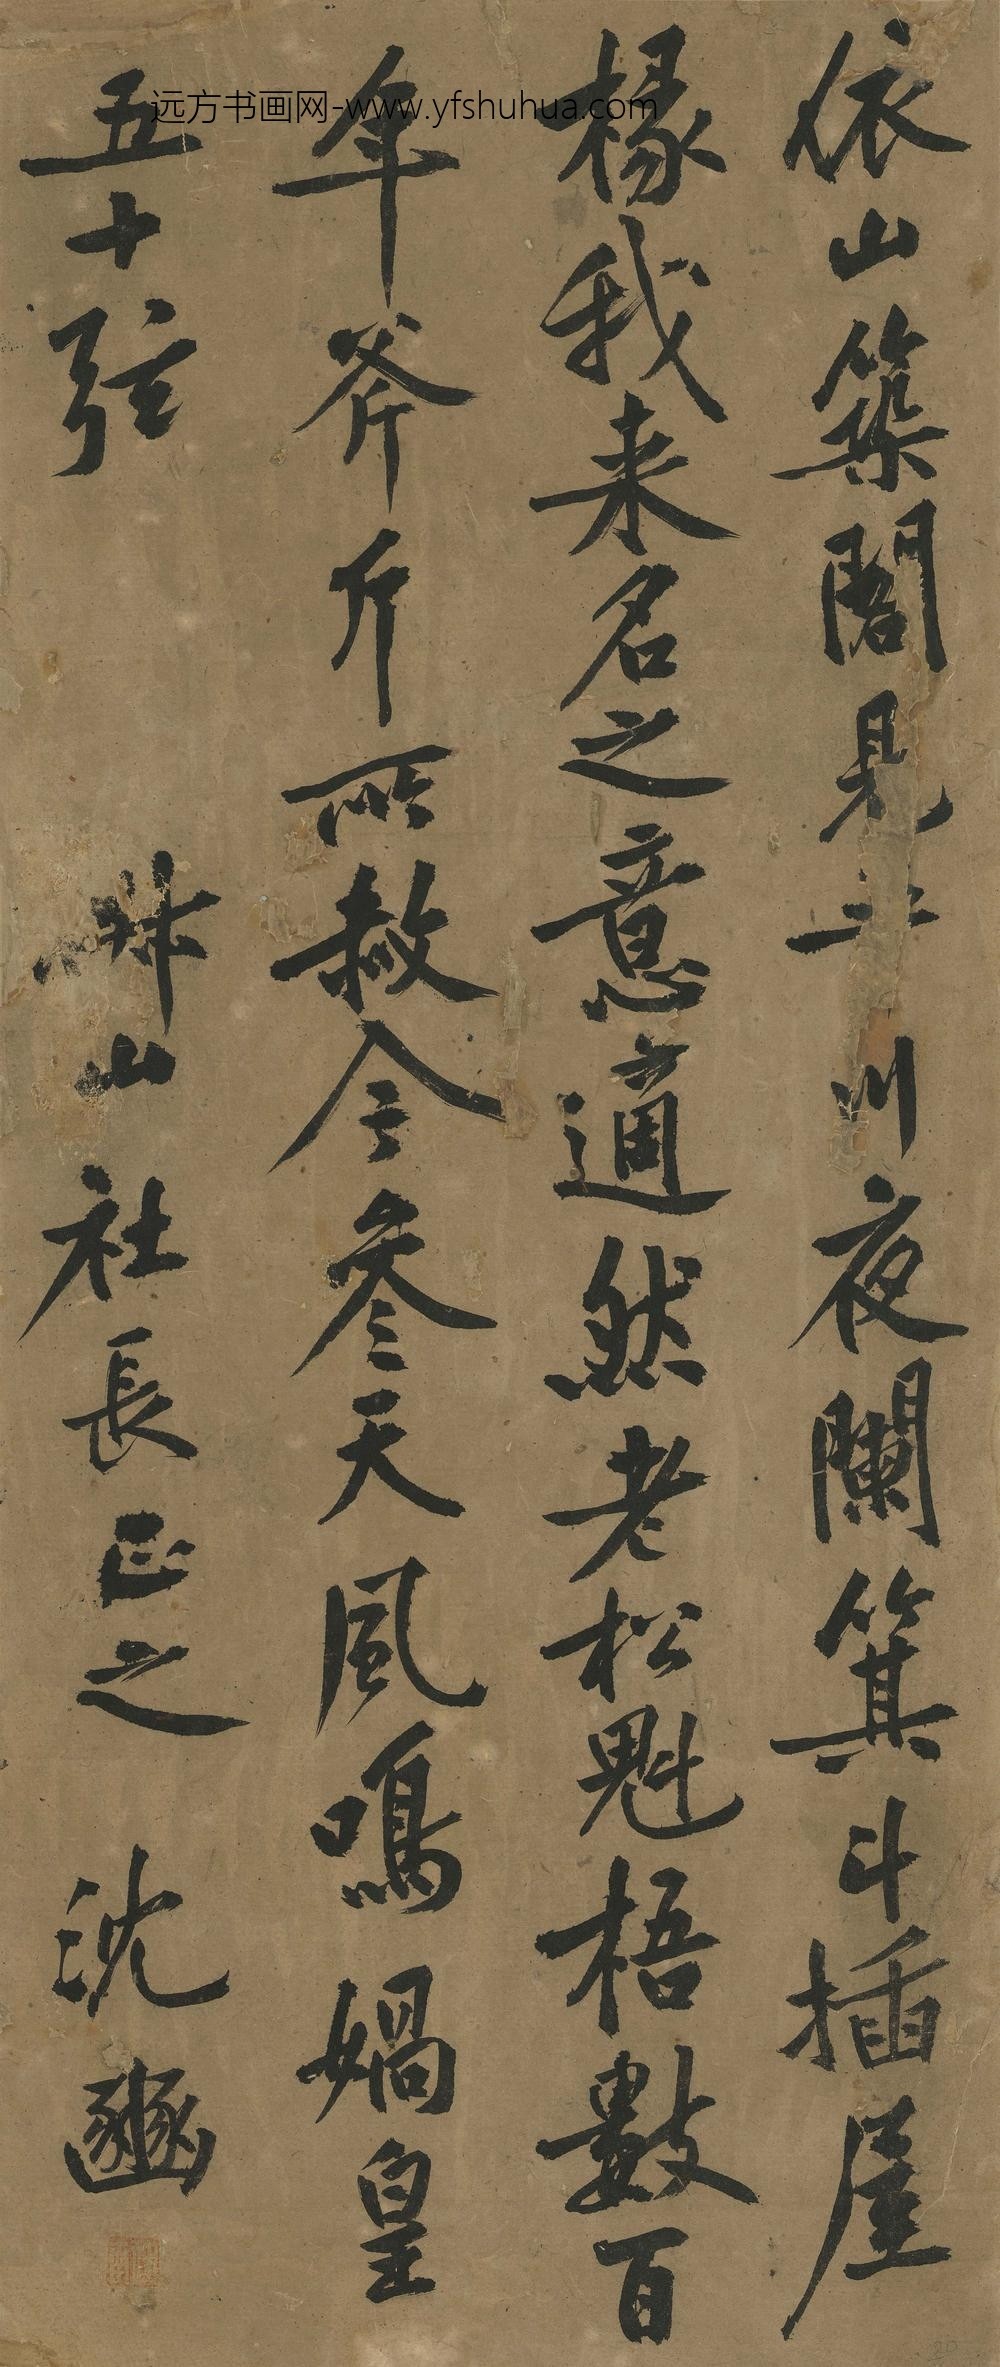 依山築閣見平川夜闌箕斗插屋
椽我来名之意適然老松魁梧數百
年斧斤所赦今參天風鳴媧皇
五十弦
社長正之
沈
远方书画网-www.yfshuhua.com